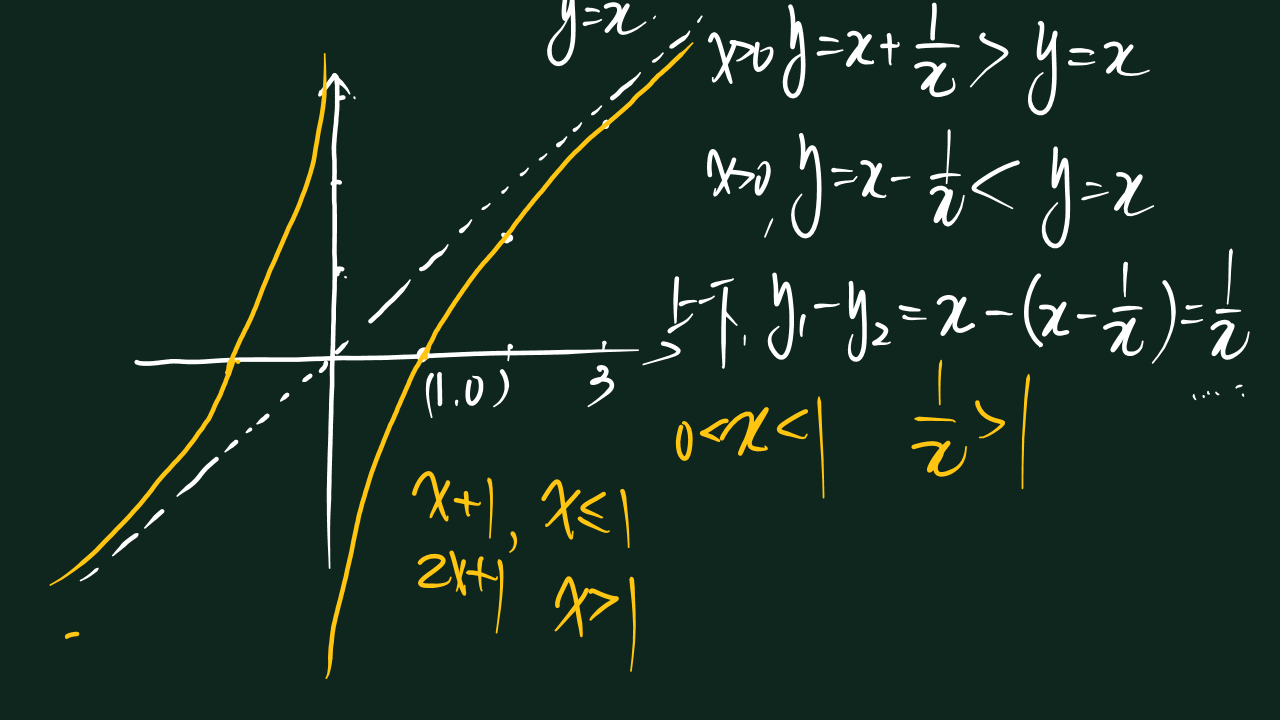 y=x
x>0 y=x+1/x > y=x
x>0, y=x-1/x < y=x
上-下, y₁-y₂=x-(x-1/x)=1/x
.....
(1.0) 3
0<x<1 1/x>1
x+1, x≤1
2x+1 x>1